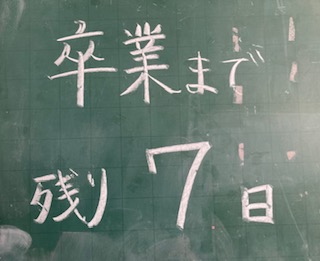 卒業まで
残り7日